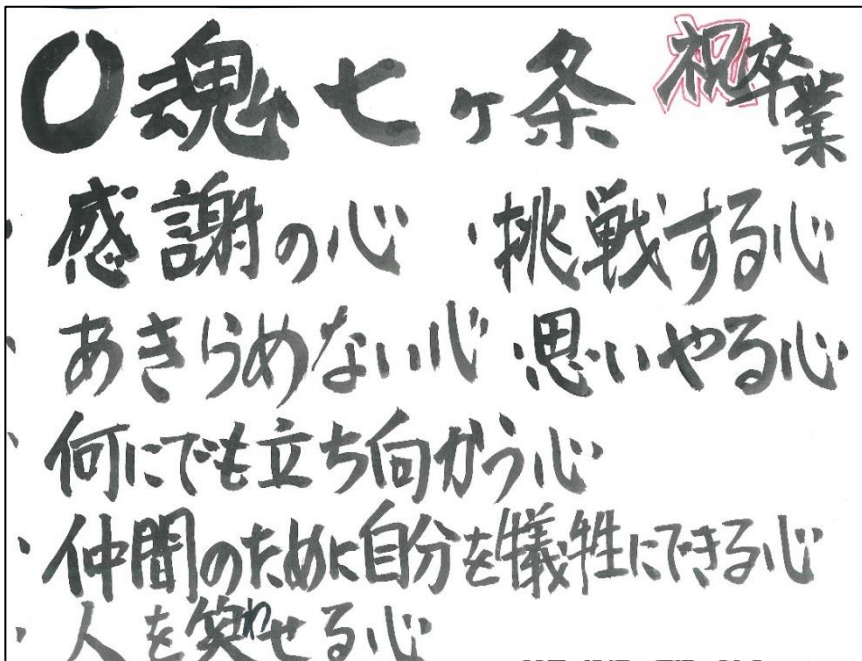 〇魂七ヶ条 祝卒業
・感謝の心 ・挑戦する心
・あきらめない心 ・思いやる心
・何にでも立ち向かう心
・仲間のために自分を犠牲にできる心
・人を笑わせる心